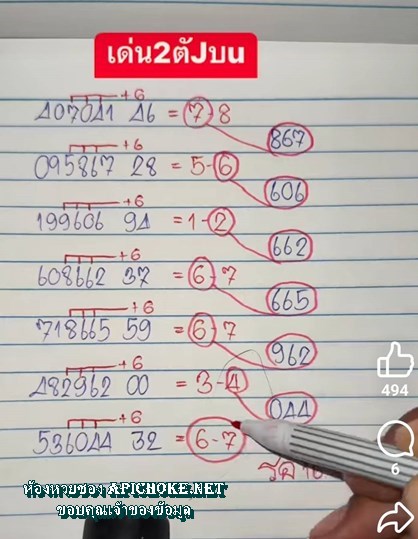 เด่น2ตัวบน
+6
407041 46 = 7-8
867
+6
095867 28 = 5-6
606
+6
199606 94 = 1-2
662
+6
608662 37 = 6-7
665
+6
718665 59 = 6-7
962
+6
482962 00 = 3-4
044
+6
536044 32 = 6-7
494
6
ห้องหวยซอง APICHOKE.NET
ขอบคุณเจ้าของข้อมูล